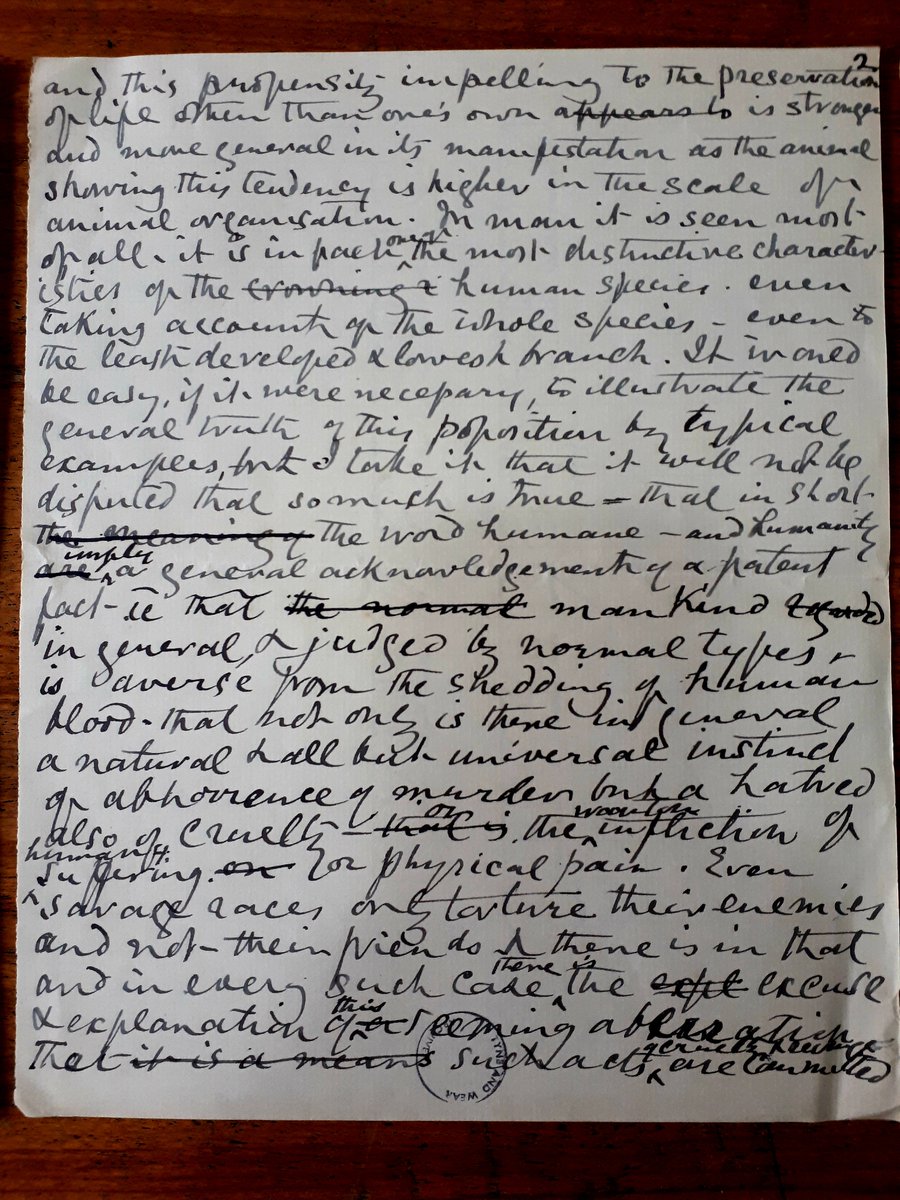 2
and this propensity impelling to the preservation
of life other than one's own appears to is stronger
and more general in its manifestation as the animal
showing this tendency is higher in the scale of
animal organisation. In man it is seen most
of all - it is in fact one of the most distinctive character-
istics of the crowning human species. even
taking account of the whole species - even to
the least developed & lowest branch. It would
be easy, if it were necessary, to illustrate the
general truth of this proposition by typical
examples, but I take it that it will not be
disputed that so much is true - that in short
the meaning of the word humane - and humanity
are imply a general acknowledgement of a patent
fact - ie that the normal man kind regarded
in general, & judged by normal types,
is averse from the shedding of human
blood - that not only is there in general
a natural & all but universal instinct
of abhorrence of murder but a hatred
also of cruelty - that is or the wanton infliction of
human suffering or physical pain. Even
savage races only torture their enemies
and not their friends & there is in that
and in every such case there is the expl excuse
& explanation of this seeming aberration
that it is a means such acts of cruelty are committed
TYNE AND WEAR